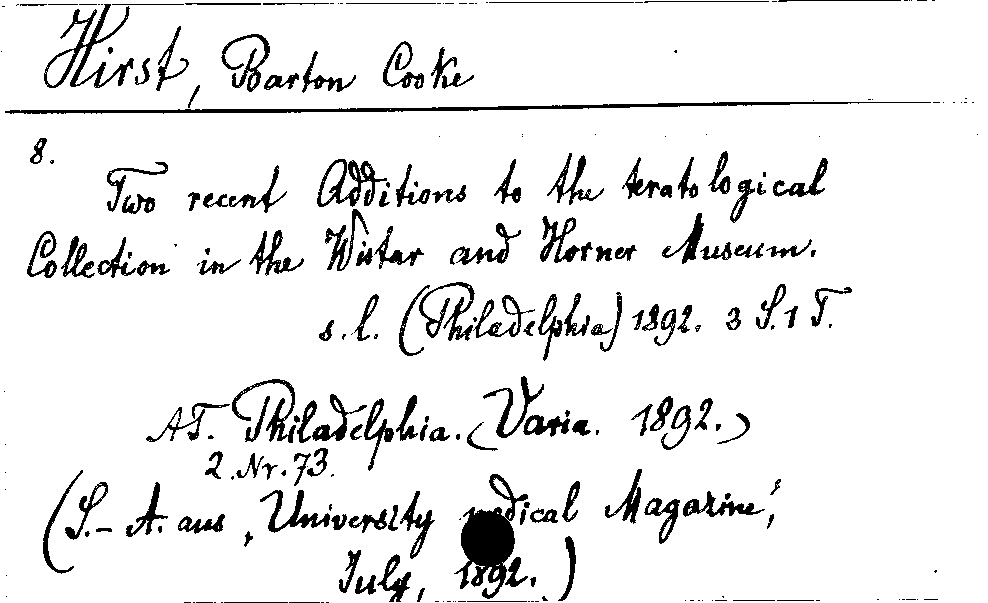 Hirst, Barton Cooke
8.
Two recent Additions to the teratological
Collection in the Wistar and Horner Museum.
s.l. (Philadelphia) 1892. 3 S. 1 T.
AT. Philadelphia. (Varia. 1892.)
2. Nr. 73.
(S.-A. aus „University medical Magazine“,
July, 1892.)